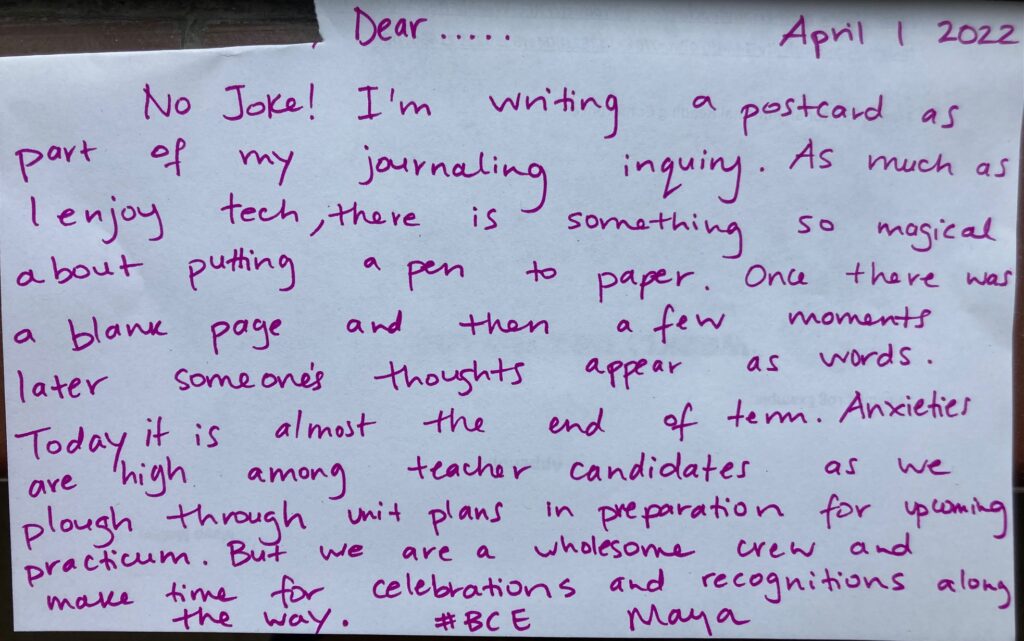 Dear..... April 1 2022
No Joke! I'm writing a postcard as
part of my journaling inquiry. As much as
I enjoy tech, there is something so magical
about putting a pen to paper. Once there was
a blank page and then a few moments
later someone's thoughts appear as words.
Today it is almost the end of term. Anxieties
are high among teacher candidates as we
plough through unit plans in preparation for upcoming
practicum. But we are a wholesome crew and
make time for celebrations and recognitions along
the way. #BCE Maya